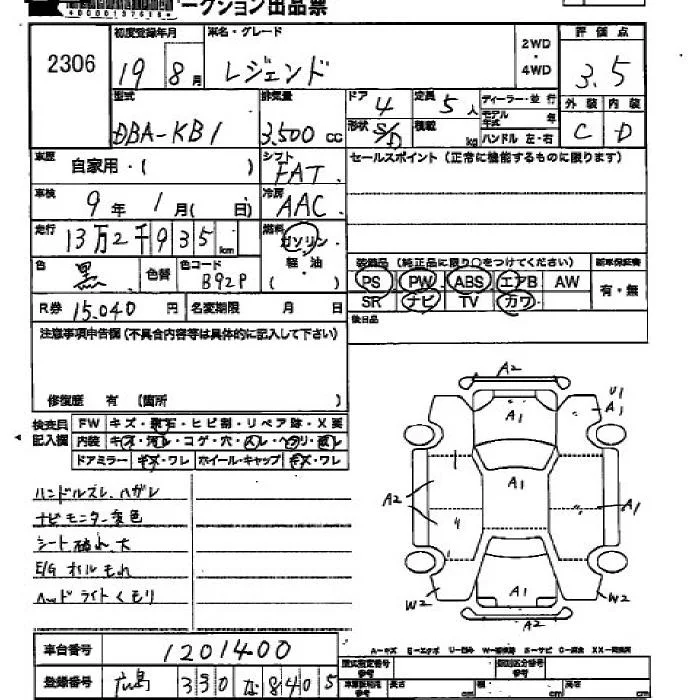 ークション出品票
2306
初度登録年月
19 8月
車名・グレード
レジェンド
2WD
・
4WD
評価点
3.5
型式
DBA-KB1
排気量
3.500 CC
ドア 4
定員 5人
ディーラー・並行
モデル年式 年
ハンドル 左・右
形状 S/D
積載 kg
外装 内装
C D
車歴
自家用・( )
シフト
FAT
セールスポイント(正常に機能するものに限ります)
車検
9年 1月( 日)
冷房
AAC
走行
13万2千935km
燃料
ガソリン
軽・油
( )
色
黒
色替
色コード
B92P
装備品(純正品に限り○をつけてください)
新車保証書
PS PW ABS エアB AW
有・無
SR ナビ TV カワ
R券 15.040 円
名変期限 月 日
後日品
注意事項申告欄(不具合内容等は具体的に記入して下さい)
修復歴 有 (箇所 )
検査員
記入欄
FW キズ・飛石・ヒビ割・リペア跡・X要
内装 キズ・汚レ・コゲ・穴・スレ・ヘタリ・破レ
ドアミラー キズ・ワレ ホイール・キャップ キズ・ワレ
ハンドルスレ、ハガレ
ナビモニター変色
シート破れ大
E/G オイルもれ
ヘッドライトくもり
A2
A1
U1
A1
A1
A2
A1
A1
W2
W2
A2
車台番号
1201400
登録番号
広島 330 な 8405
A-キズ E-エクボ U-凹み W-補修跡 S-サビ C-腐食 XX-交換済
型式指定番号
参考
類別区分番号
参考
長さ cm
幅 cm
高さ cm